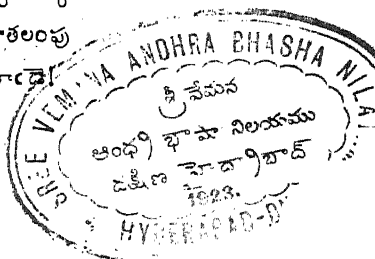 తలంపు
SREE VEMANA ANDHRA BHASHA NILA
శ్రీ వేమన
ఆంధ్ర భాషా నిలయము
దక్షిణ హైద్రాబాద్
1923.
HYDERABAD-D